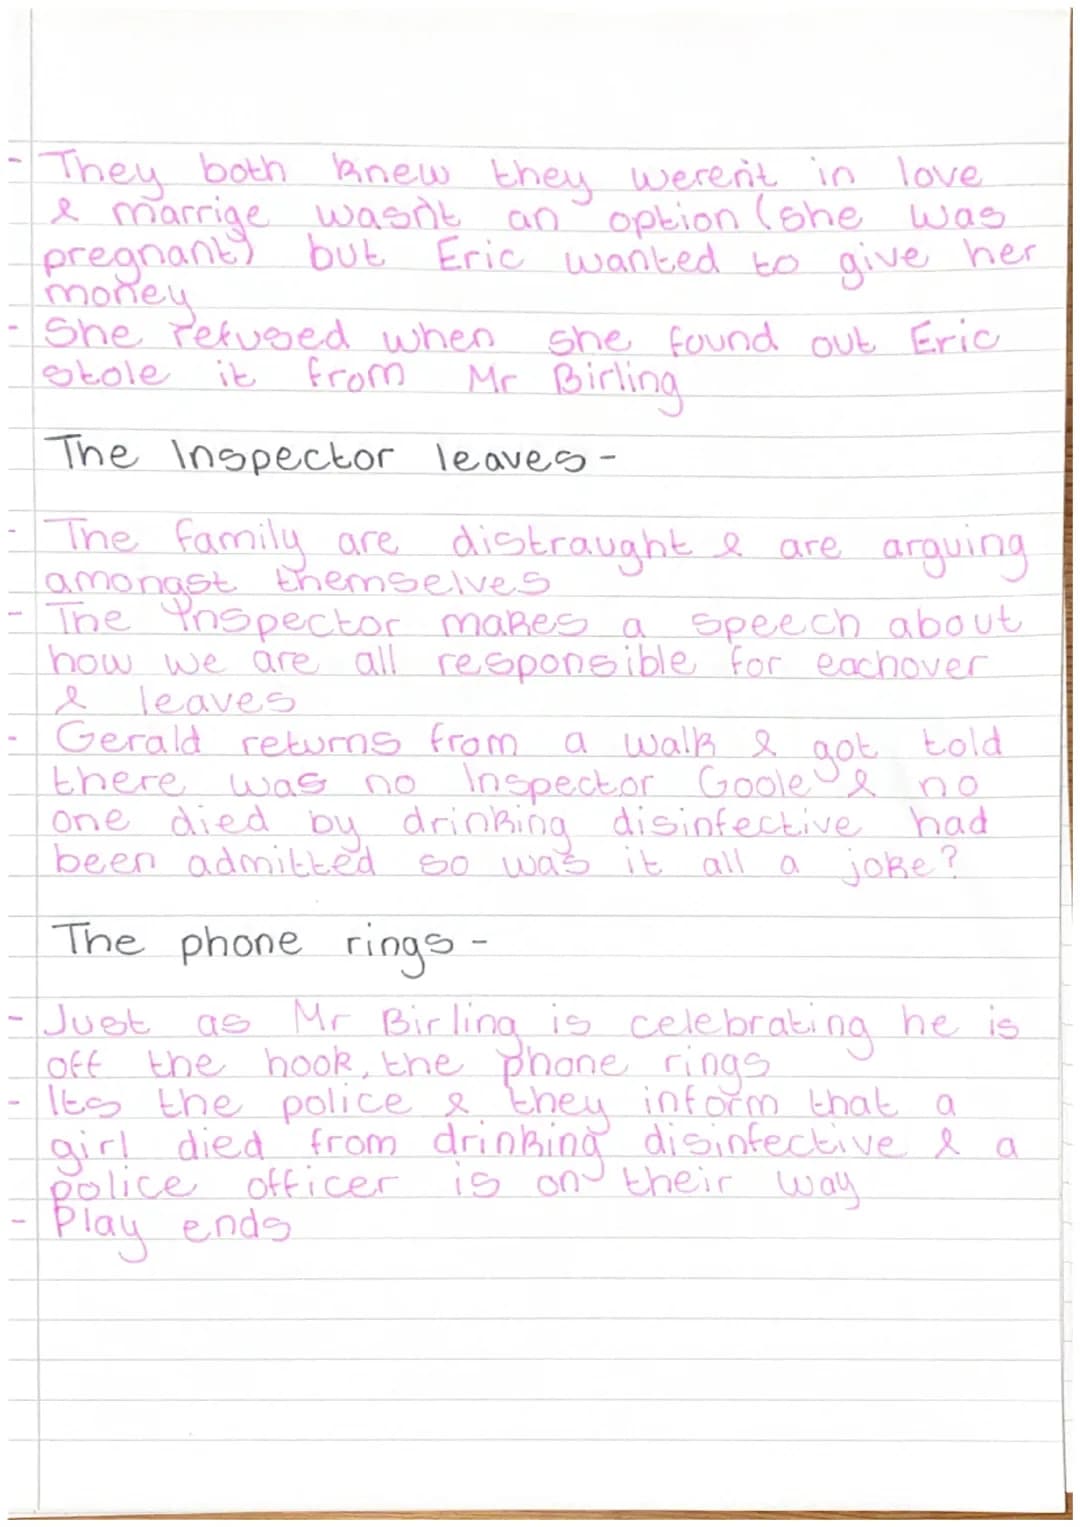 - They both knew they weren't in love
& marrige wasn't an option (she was
pregnant) but Eric wanted to give her
money
- She refused when she found out Eric
stole it from Mr Birling
The Inspector leaves -
- The family are distraught & are arguing
amongast themselves
- The Inspector makes a speech about
how we are all responsible for eachover
& leaves
- Gerald returns from a walk & got told
there was no Inspector Goole & no
one died by drinking disinfective had
been admitted so was it all a joke?
The phone rings -
- Just as Mr Birling is celebrating he is
off the hook, the phone rings
- Its the police & they inform that a
girl died from drinking disinfective & a
police officer is on their way
- Play ends